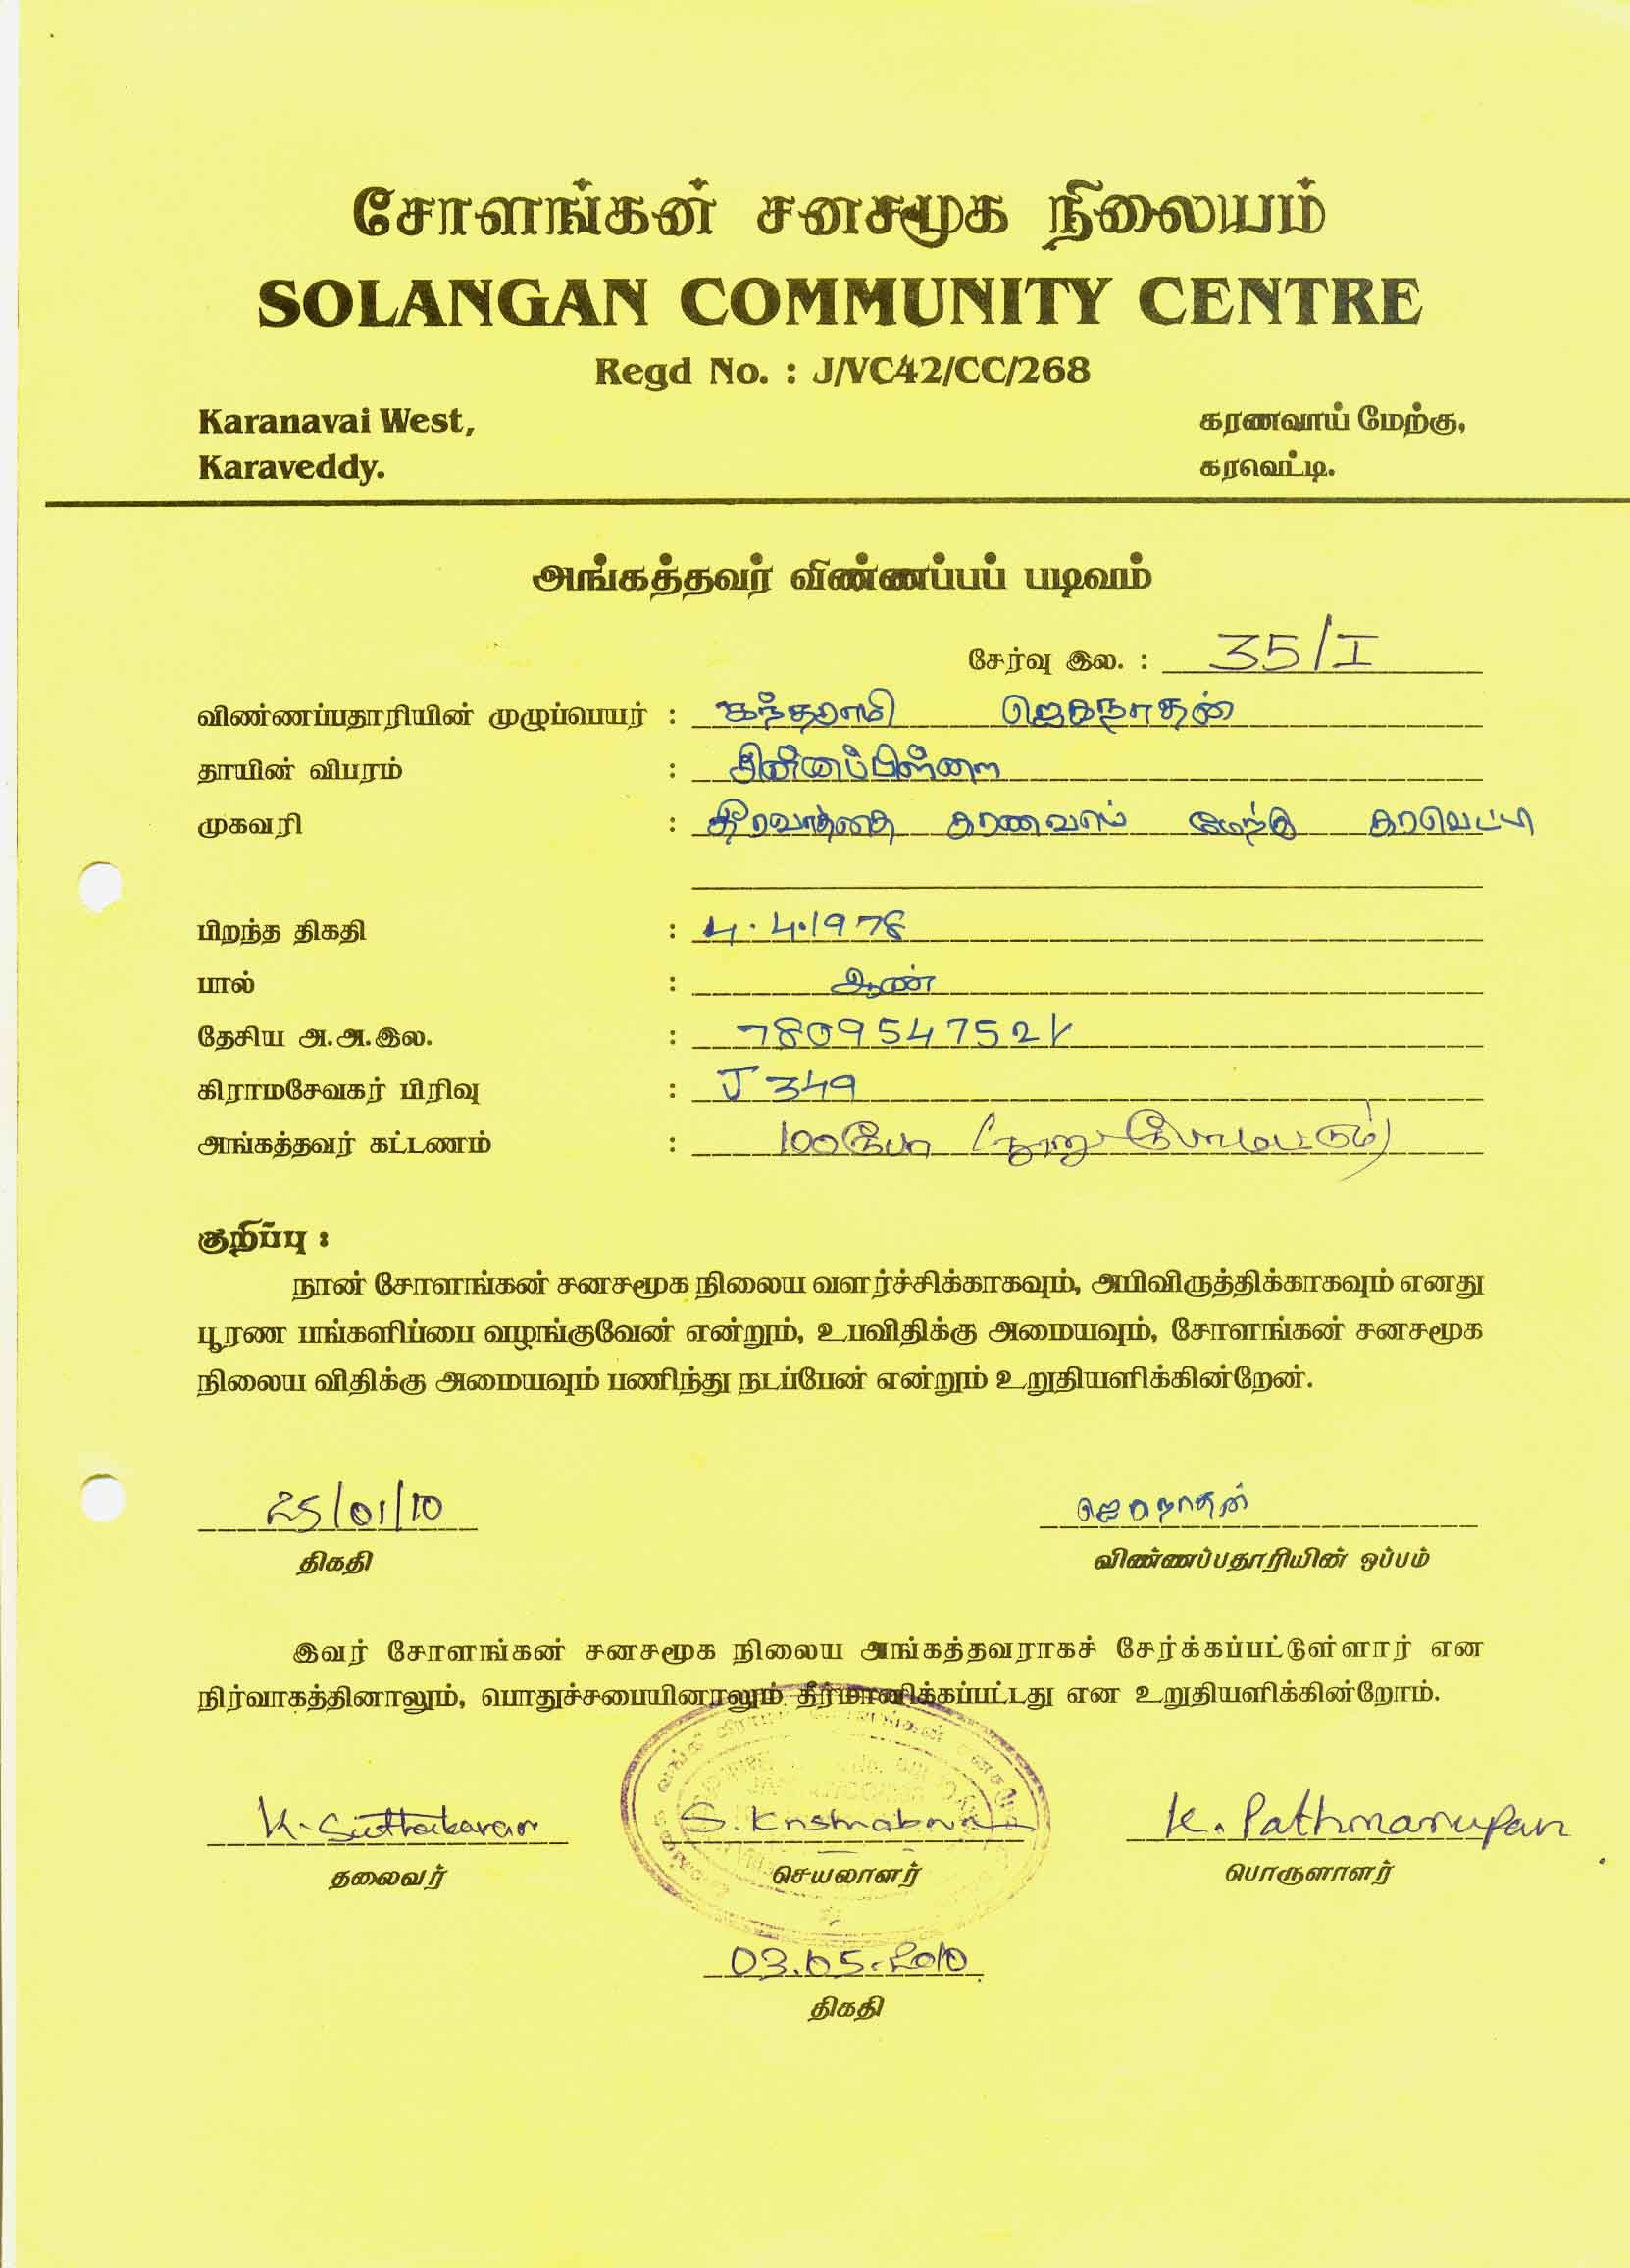 சோளங்கன் சனசமூக நிலையம்
SOLANGAN COMMUNITY CENTRE
Regd No. : J/VC42/CC/268
Karanavai West, கரணவாய் மேற்கு,
Karaveddy. கரவெட்டி.
அங்கத்தவர் விண்ணப்பப் படிவம்
சேர்வு இல. : 35/I
விண்ணப்பதாரியின் முழுப்பெயர் : கந்தசாமி ஜெகநாதன்
தாயின் விபரம் : சின்னப்பிள்ளை
முகவரி : கரணவாய் மேற்கு கரவெட்டி
பிறந்த திகதி : 4.4.1978
பால் : ஆண்
தேசிய அ.அ.இல. : 780954752V
கிராமசேவகர் பிரிவு : J 349
அங்கத்தவர் கட்டணம் : 100ரூபா
குறிப்பு :
நான் சோளங்கன் சனசமூக நிலைய வளர்ச்சிக்காகவும், அபிவிருத்திக்காகவும் எனது
பூரண பங்களிப்பை வழங்குவேன் என்றும், உபவிதிக்கு அமையவும், சோளங்கன் சனசமூக
நிலைய விதிக்கு அமையவும் பணிந்து நடப்பேன் என்றும் உறுதியளிக்கின்றேன்.
25/01/10 ஜெகநாதன்
திகதி விண்ணப்பதாரியின் ஒப்பம்
இவர் சோளங்கன் சனசமூக நிலைய அங்கத்தவராகச் சேர்க்கப்பட்டுள்ளார் என
நிர்வாகத்தினாலும், பொதுச்சபையினராலும் தீர்மானிக்கப்பட்டது என உறுதியளிக்கின்றோம்.
K. Suthakaran S. K. Pathmarupan
தலைவர் செயலாளர் பொருளாளர்
03.05.2010
திகதி